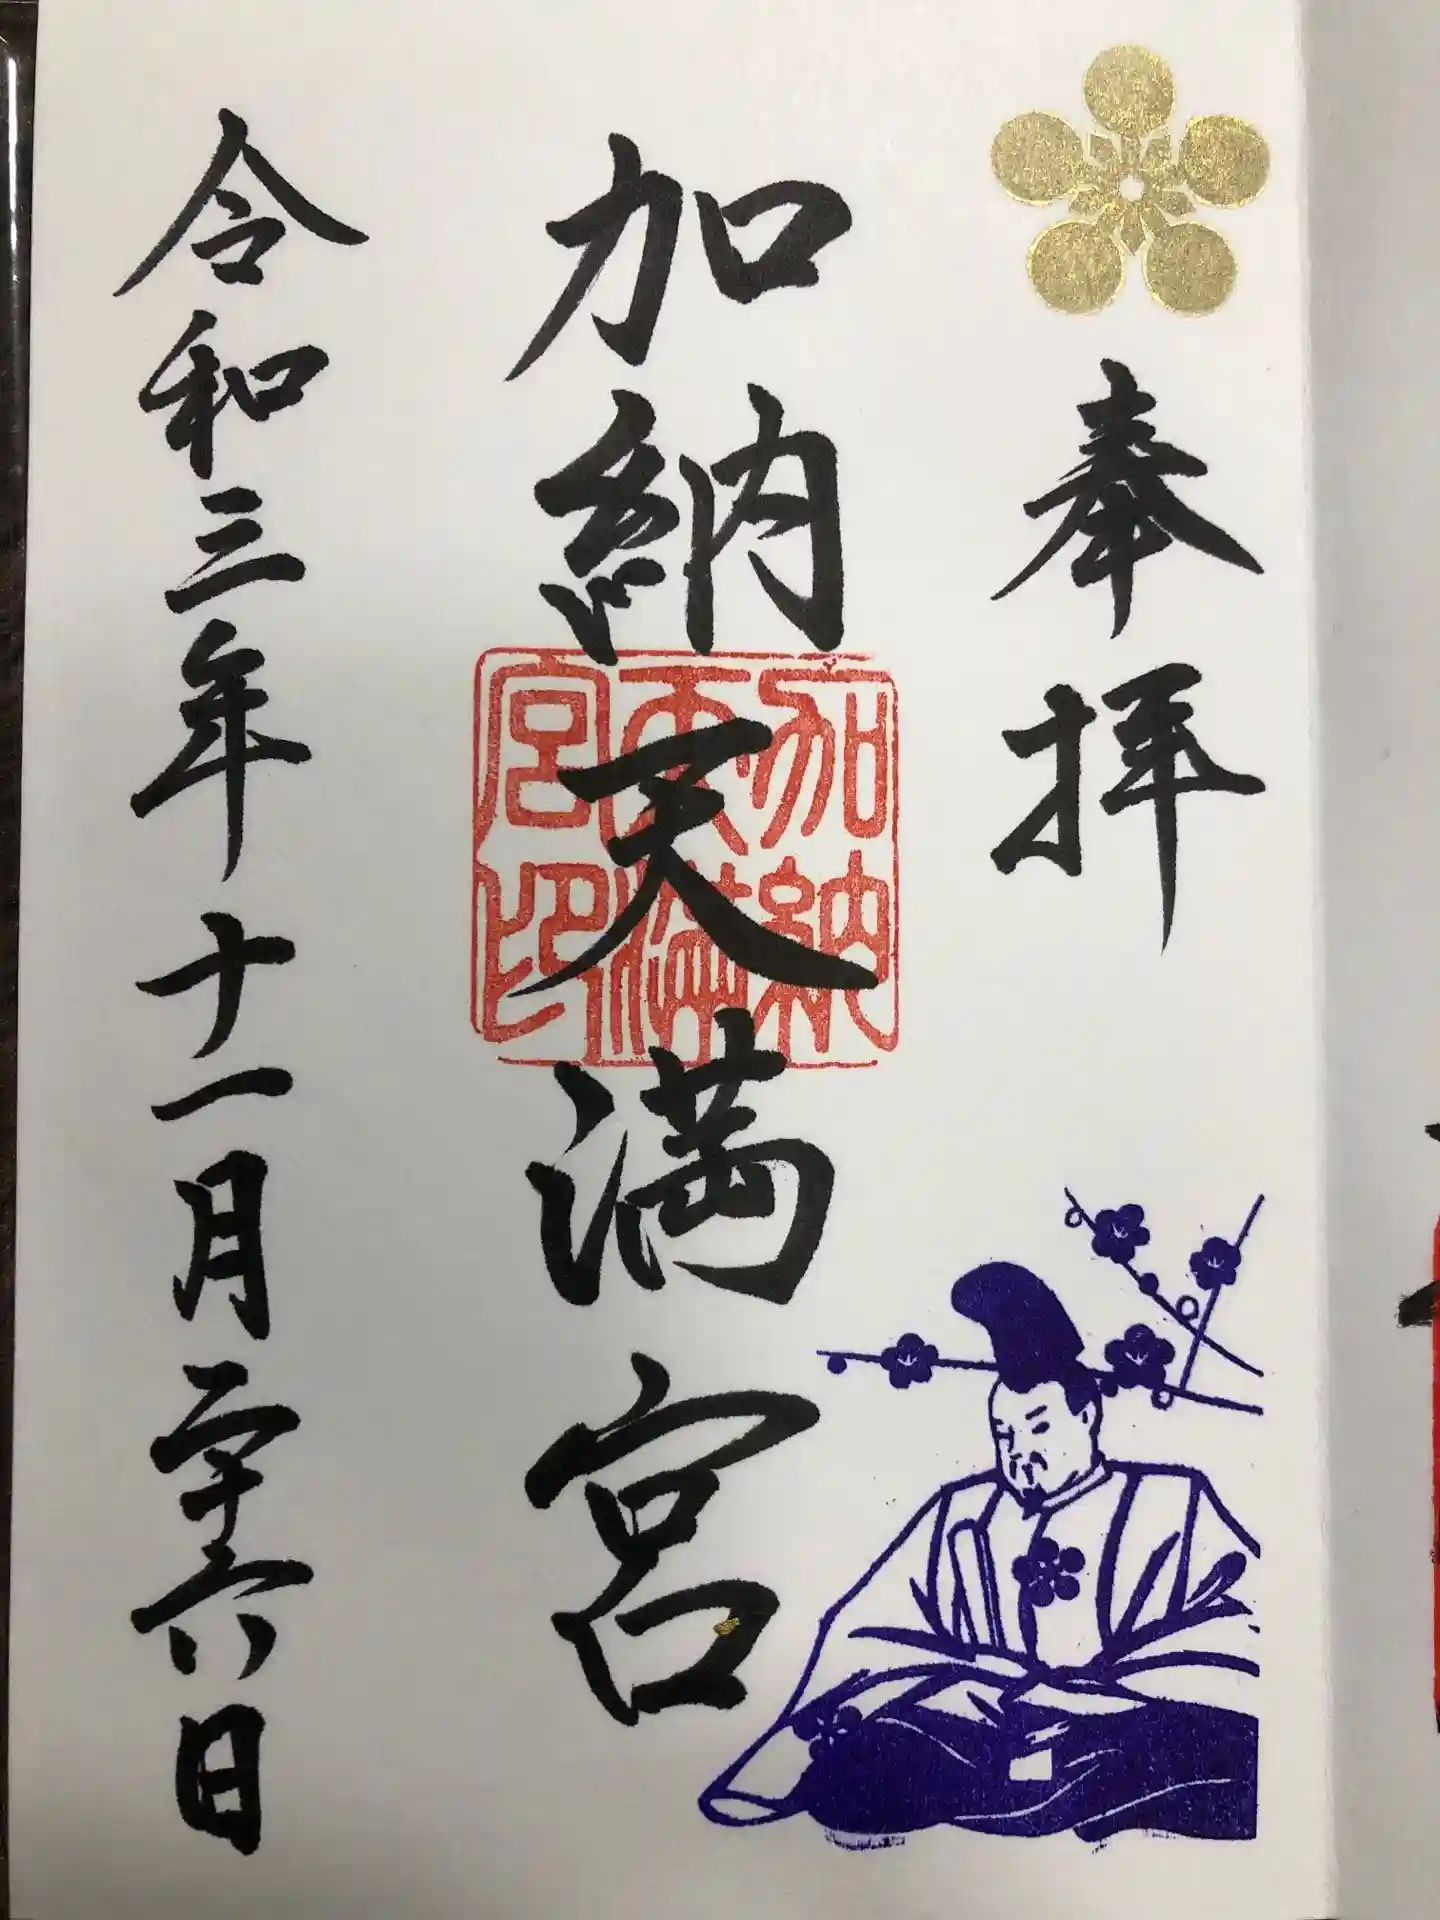 奉拝
加納天満宮
加納天満宮印
令和三年十一月二十六日